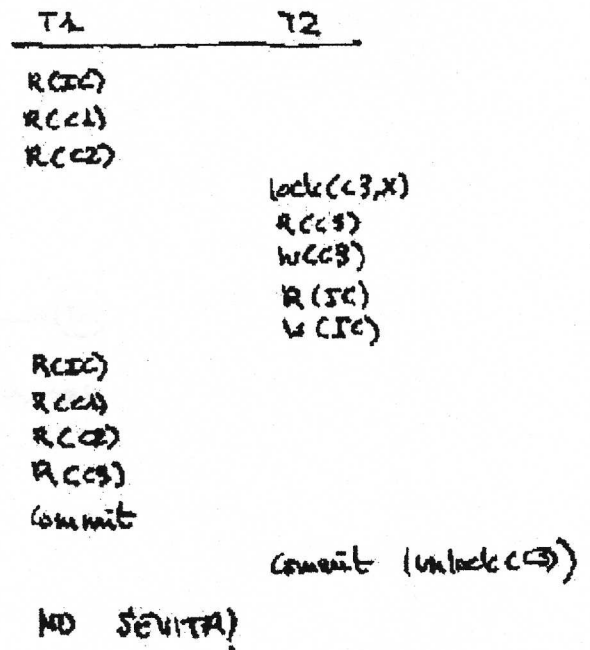 T1 T2
R(IC)
R(C1)
R(C2)
lock(C3,X)
R(C3)
W(C3)
R(IC)
W(IC)
R(IC)
R(C1)
R(C2)
R(C3)
Commit
Commit (unlock C3)
NO SEVITA)